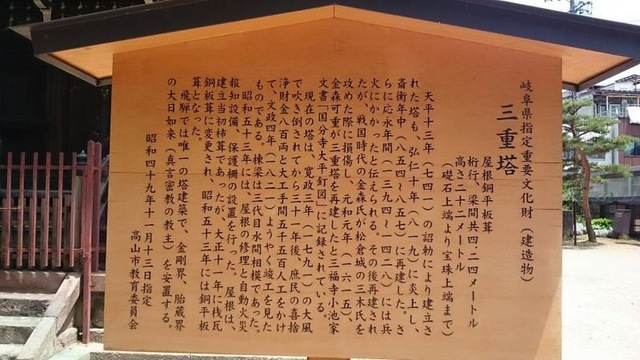 岐阜県指定重要文化財（建造物）
三重塔
屋根銅平板葺
桁行、梁間共四・二四メートル
高さ二十二メートル
（礎石上端より宝珠上端まで）
天平十三年（七四一）の詔勅により建立さ
れた塔も、弘仁十年（八一九）に炎上し、
斎衡年中（八五四〜八五七）に再建した。さ
らに応永年間（一三九四〜一四二八）には兵
火にかかったと伝えられる。その後再建され
たが、戦国時代の金森氏が松倉城の三木氏を
攻めた際に損傷し、元和元年（一六一五）、
金森可重が三重塔を再建したと三福寺小池家
文書「国分寺大平釘図」に記録されている。
現在の塔は、寛政三年（一七九一）の大風
で吹き倒されてから三十一年後、庶民の喜捨
浄財金八百両と大工手間五千五百人工をかけ
て、文政四年（一八二一）ようやく竣工を見た
ものである。棟梁は三代目水間相模であった。
昭和五十三年には、屋根の修理と自動火災
報知設備、保護柵の設置を行った。屋根は、
建立当初柿葺であったが、大正十一年に桟瓦
葺となった。
銅板葺に変更され、昭和五十三年には銅平板
飛騨では唯一の塔建築で、金剛界、胎蔵界
の大日如来（真言密教の教主）を安置する。
昭和四十九年十一月十三日指定
高山市教育委員会